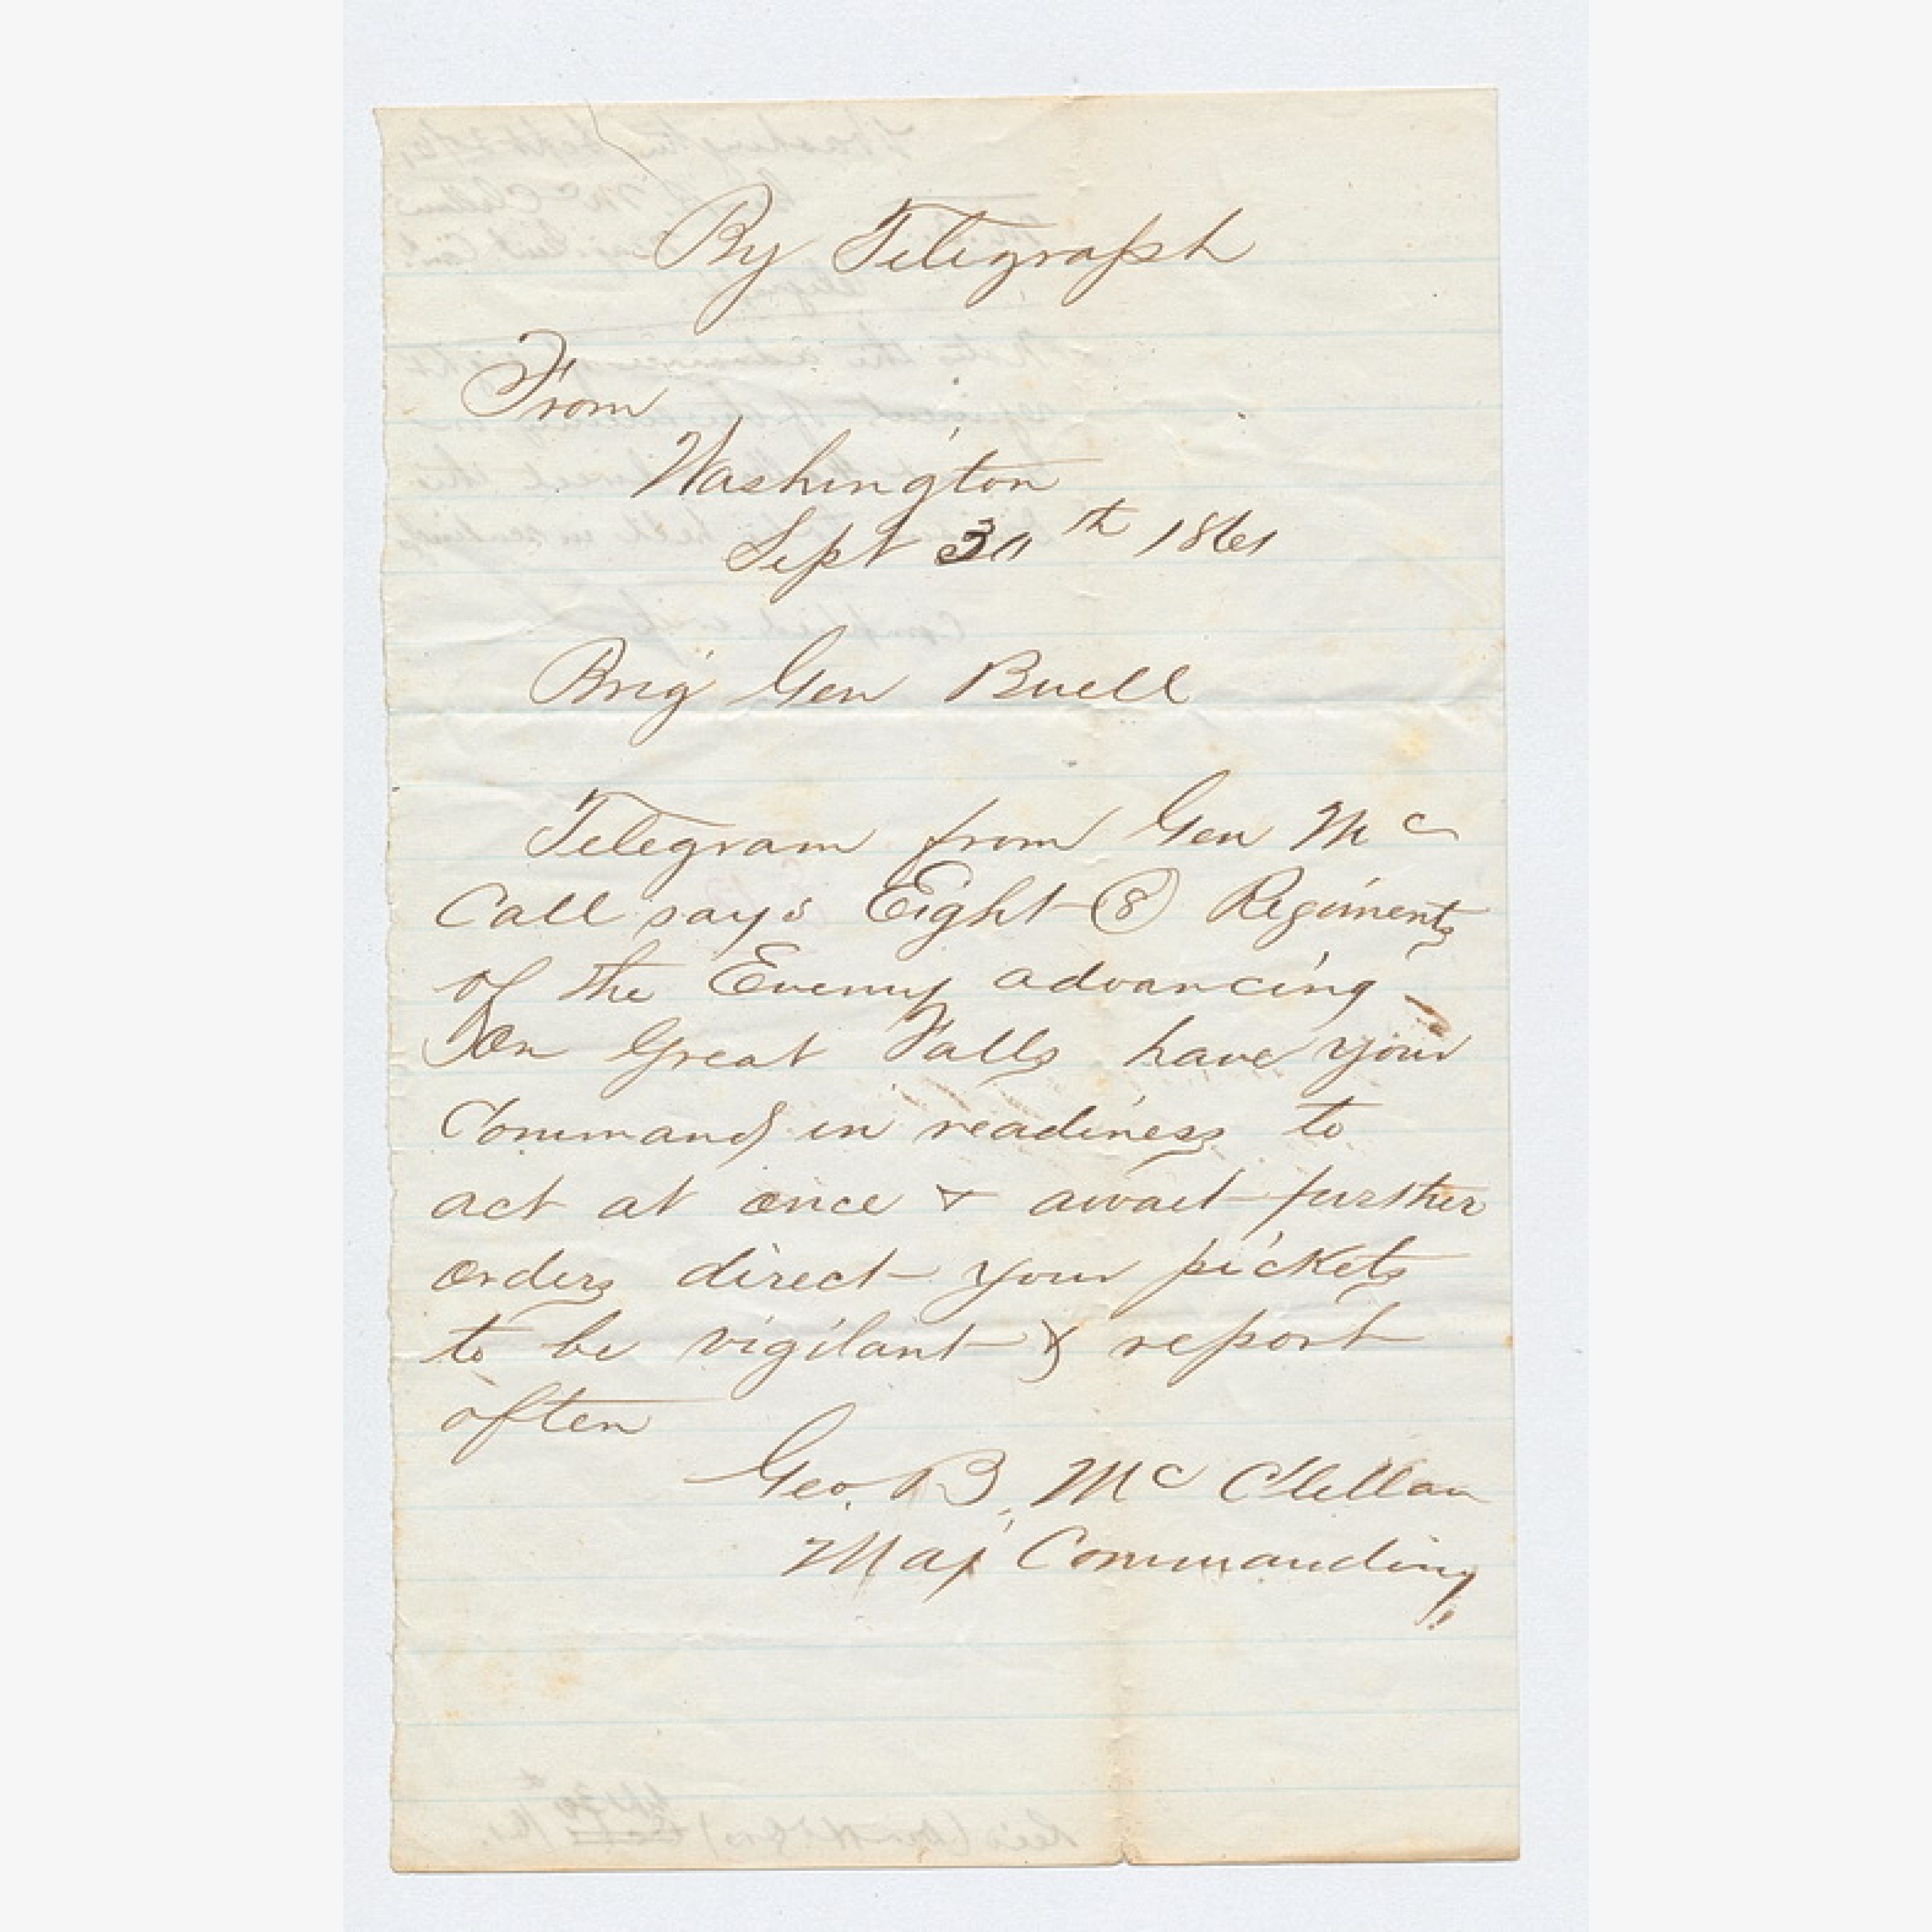 By Telegraph
From
Washington
Sept 30th 1861
Brig Gen Buell
Telegram from Gen Mc
Call says Eight (8) Regiments
of the Enemy advancing
on Great Falls have your
Command in readiness to
act at once & await further
orders direct your pickets
to be vigilant & report
often
Geo. B. Mc Clellan
Maj Commanding